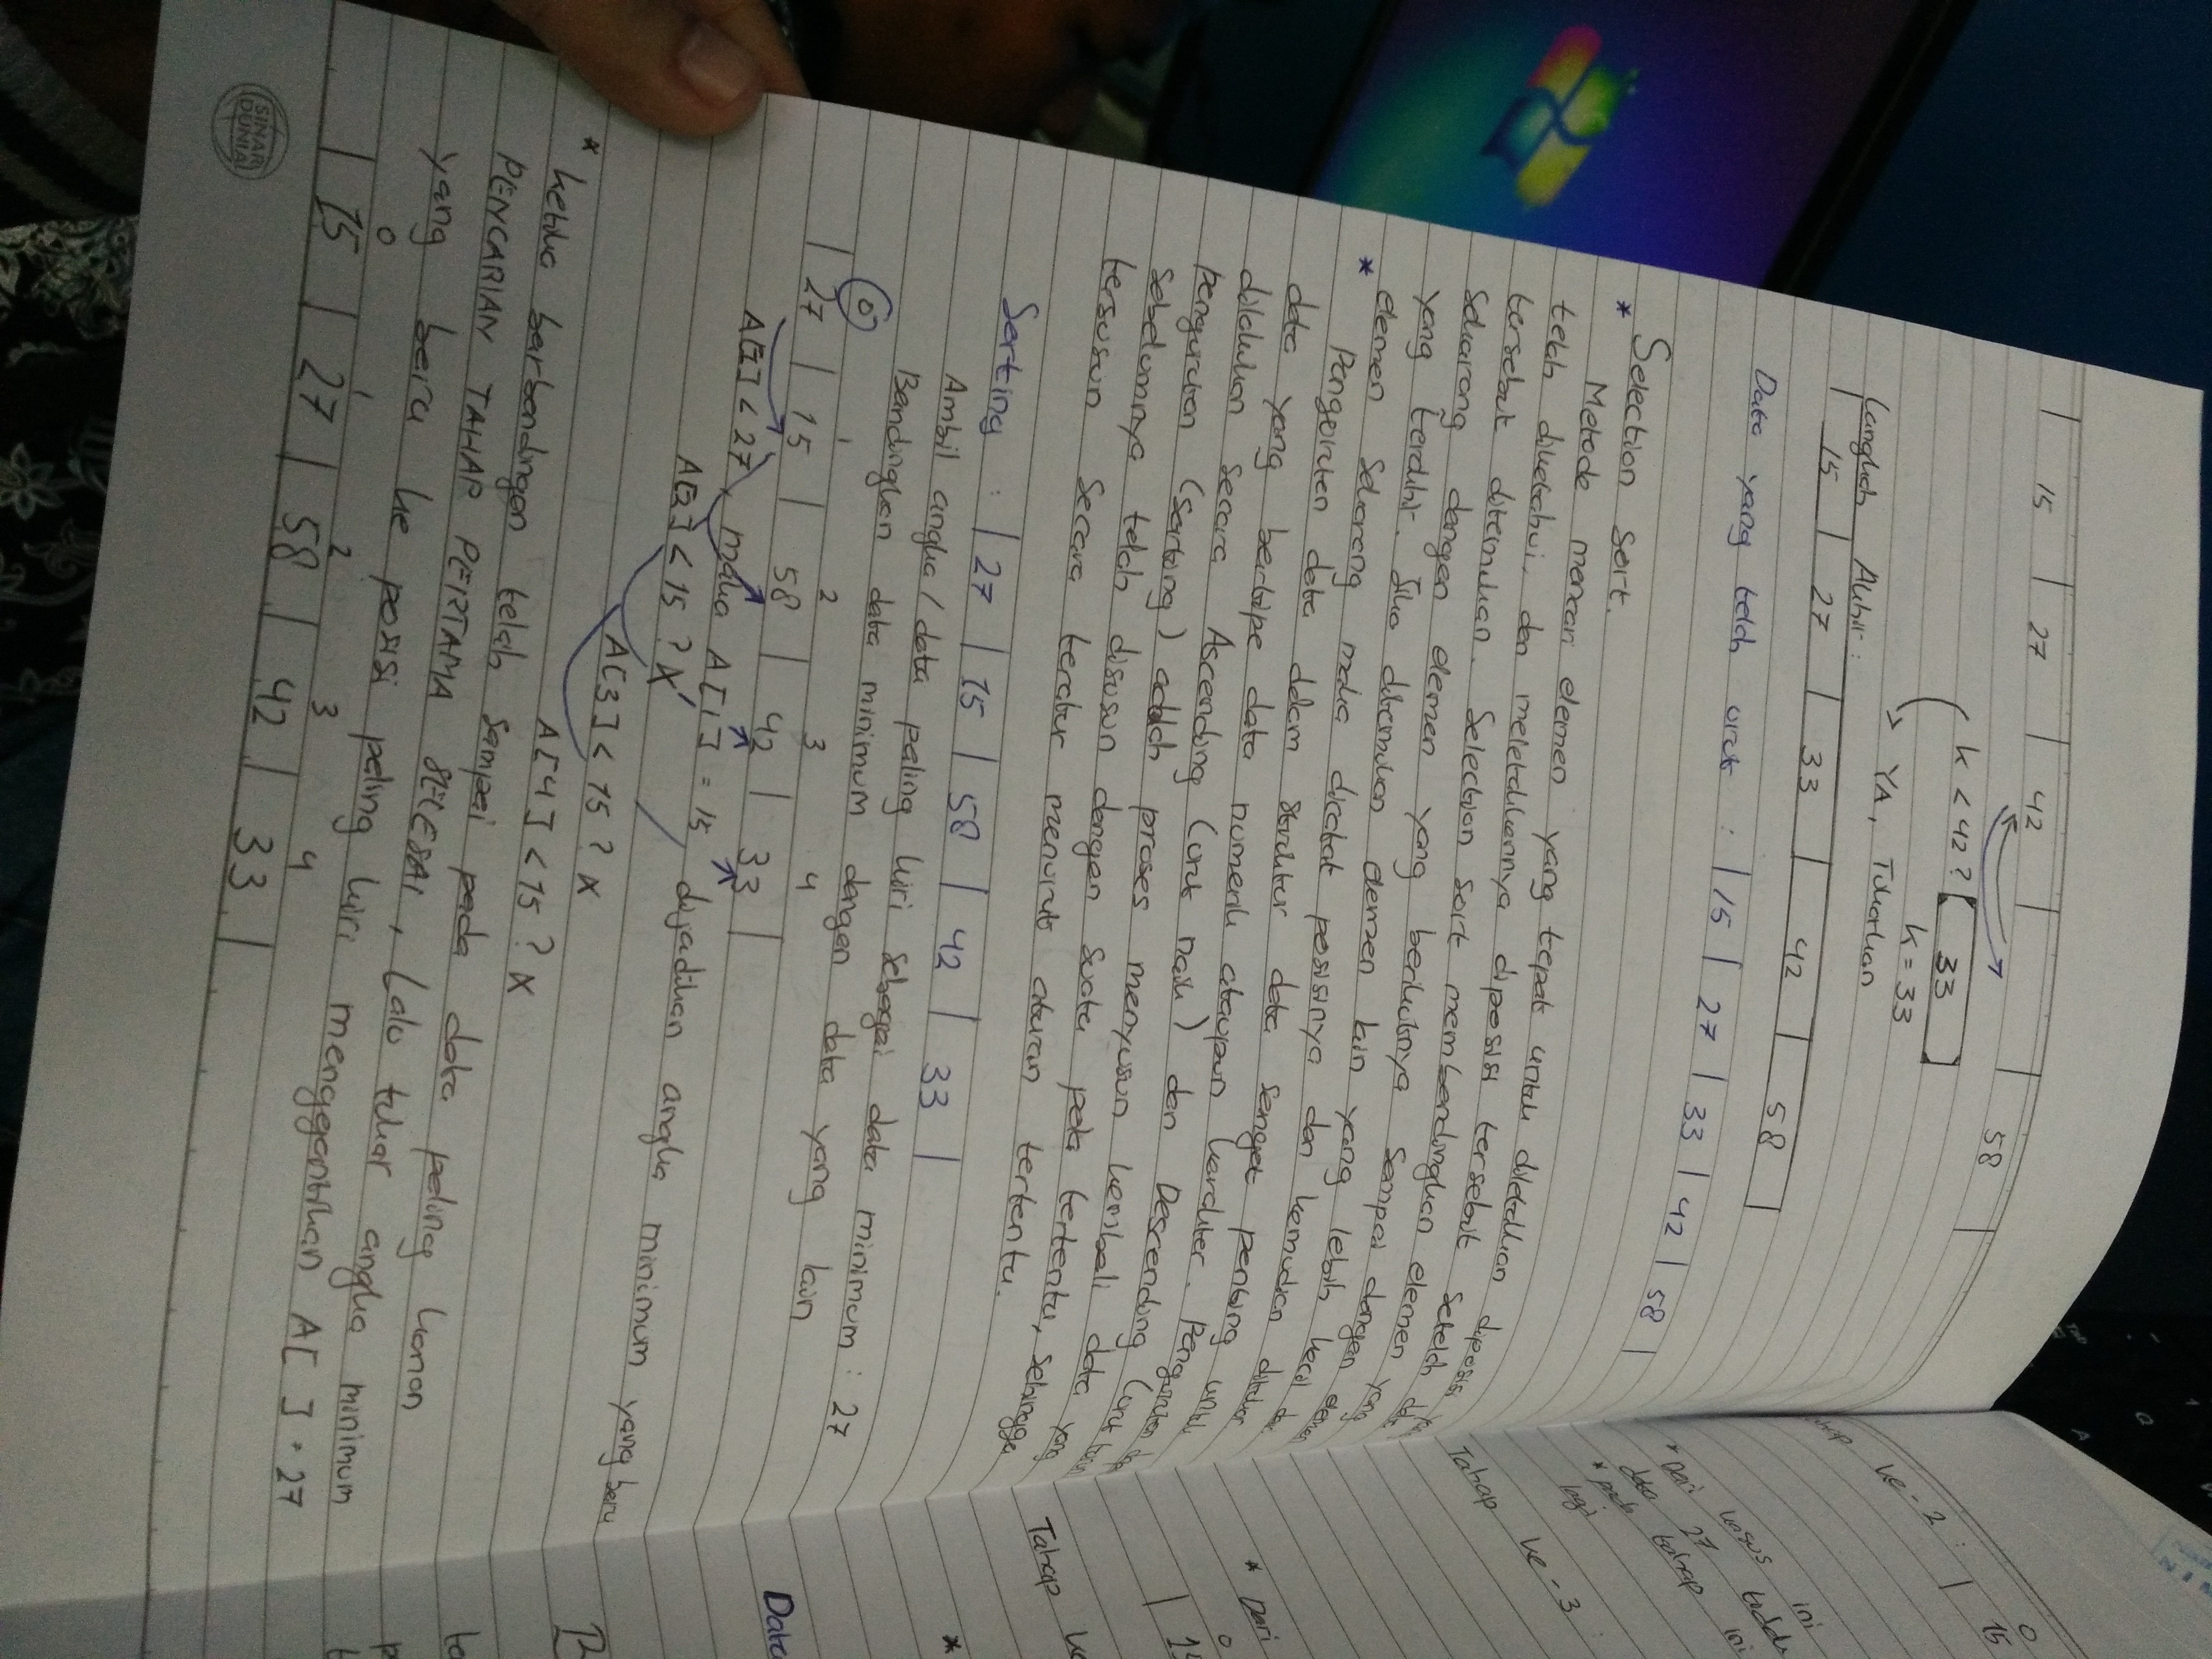 15 | 27 | 42 | | 58
k < 42 ? [ 33 ]
k = 33
→ YA, Tukarkan
Langkah Akhir :
| 15 | 27 | 33 | 42 | 58 |
Data yang telah urut : | 15 | 27 | 33 | 42 | 58 |
* Selection Sort.
Metode mencari elemen yang tepat untuk diletakkan diposisi
telah diketahui, dan meletakkannya diposisi tersebut setelah
tersebut ditemukan. Selection sort membandingkan elemen
sekarang dengan elemen yang berikutnya sampai dengan
yang terakhir. Jika ditemukan elemen lain yang lebih kecil
elemen sekarang maka dicatat posisinya dan kemudian ditukar
* Pengurutan data dalam struktur data sangat penting untuk
data yang bertipe data numerik ataupun karakter. Pengurutan
dilakukan secara Ascending (urut naik) dan Descending (urut
Pengurutan (Sorting) adalah proses menyusun kembali data yang
sebelumnya telah disusun dengan suatu pola tertentu, sehingga
tersusun secara teratur menurut aturan tertentu.
Sorting : | 27 | 15 | 58 | 42 | 33 |
Ambil angka / data paling kiri sebagai data minimum : 27
Bandingkan data minimum dengan data yang lain
0 1 2 3 4
| 27 | 15 | 58 | 42 | 33 |
A[1] < 27, maka A[1] = 15 dijadikan angka minimum yang baru
A[2] < 15 ? X
A[3] < 15 ? X
A[4] < 15 ? X
* ketika barbandingan telah sampai pada data paling kanan
PENCARIAN TAHAP PERTAMA SELESAI, Lalu tukar angka minimum
yang baru ke posisi paling kiri menggantikan A[ ] = 27
0 1 2 3 4
| 15 | 27 | 58 | 42 | 33 |
SINAR DUNIA
ke - 2 : | 15
0
* Dari kasus ini
data 27
* pada tahap ini
lagi
Tahap ke - 3 :
* Dari
0
Tahap
*
Data